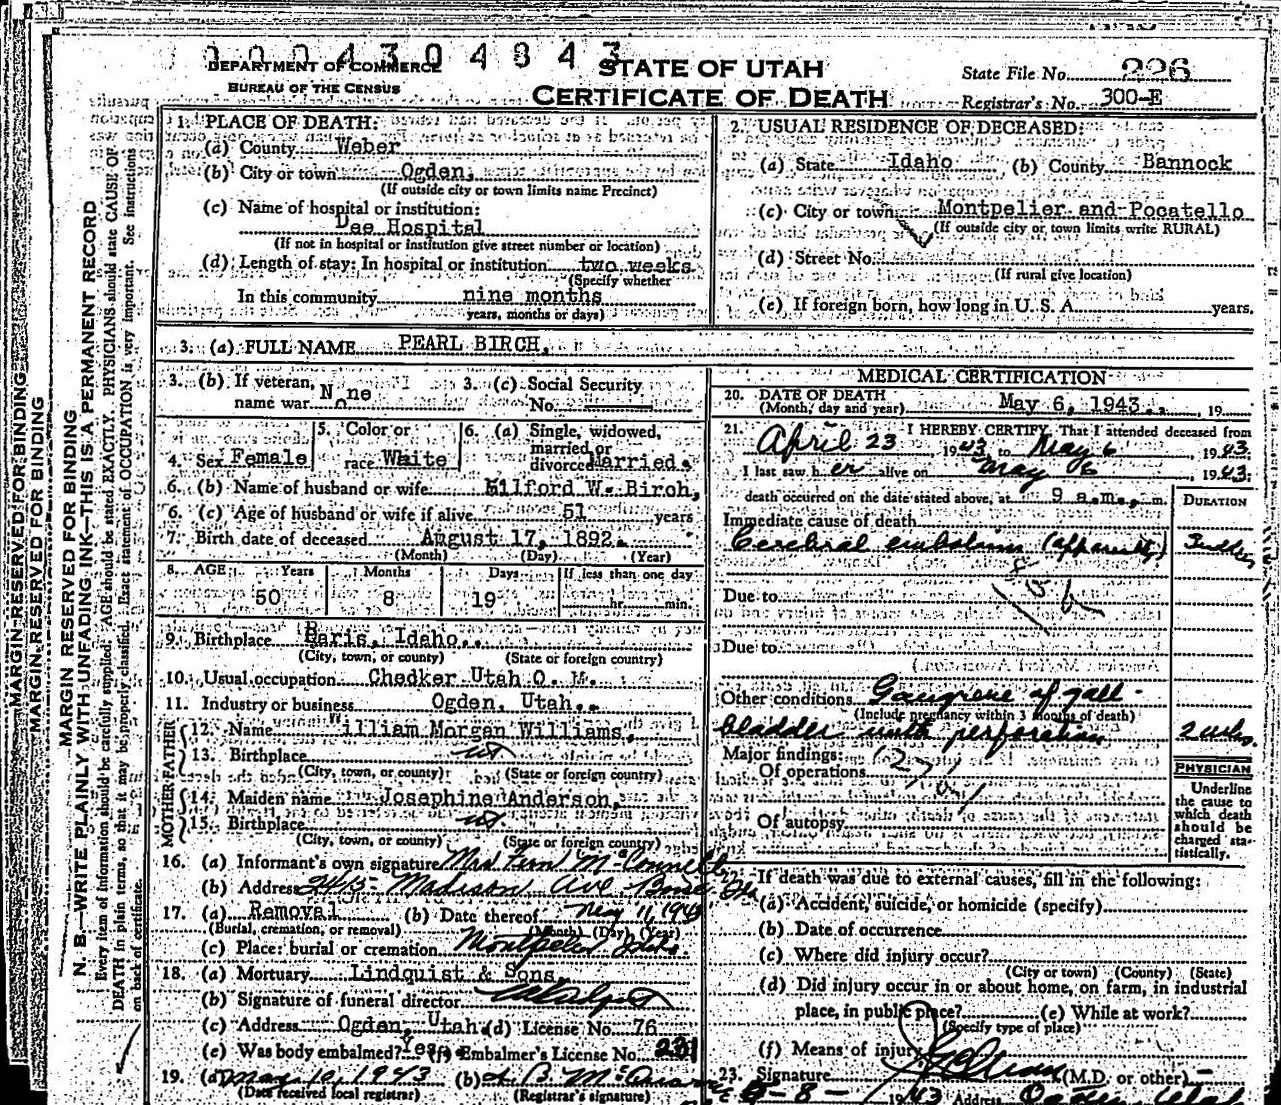 1004304843
DEPARTMENT OF COMMERCE
BUREAU OF THE CENSUS
STATE OF UTAH
CERTIFICATE OF DEATH
State File No. 226
Registrar's No. 300-E
MARGIN RESERVED FOR BINDING
MARGIN RESERVED FOR BINDING
MARGIN RESERVED FOR BINDING
N. B.—WRITE PLAINLY WITH UNFADING INK—THIS IS A PERMANENT RECORD
Every item of information should be carefully supplied. AGE should be stated EXACTLY. PHYSICIANS should state CAUSE OF
DEATH in plain terms, so that it may be properly classified. Exact statement of OCCUPATION is very important. See instructions
on back of certificate.
1. PLACE OF DEATH:
(a) County Weber
(b) City or town Ogden,
(If outside city or town limits name Precinct)
(c) Name of hospital or institution:
Dee Hospital
(If not in hospital or institution give street number or location)
(d) Length of stay: In hospital or institution two weeks
(Specify whether
In this community nine months
years, months or days)
2. USUAL RESIDENCE OF DECEASED:
(a) State Idaho (b) County Bannock
(c) City or town Montpelier and Pocatello
(If outside city or town limits write RURAL)
(d) Street No.
(If rural give location)
(e) If foreign born, how long in U. S. A. years.
3. (a) FULL NAME PEARL BIRCH,
3. (b) If veteran, name war None
3. (c) Social Security No.
4. Sex Female
5. Color or race White
6. (a) Single, widowed, married or divorced Married.
6. (b) Name of husband or wife Milford W. Birch,
6. (c) Age of husband or wife if alive 51 years
7. Birth date of deceased August 17, 1892.
(Month) (Day) (Year)
8. AGE Years Months Days If less than one day
50 8 19 hr. min.
9. Birthplace Paris, Idaho.
(City, town, or county) (State or foreign country)
10. Usual occupation Checker Utah O. M.
11. Industry or business Ogden, Utah.
FATHER
12. Name William Morgan Williams,
13. Birthplace
(City, town, or county) (State or foreign country)
MOTHER
14. Maiden name Josephine Anderson,
15. Birthplace
(City, town, or county) (State or foreign country)
16. (a) Informant's own signature Mrs Fern McConnell
(b) Address Madison Ave Boise
17. (a) Removal (b) Date thereof May 11, 1943
(Burial, cremation, or removal) (Month) (Day) (Year)
(c) Place: burial or cremation Montpelier Idaho
18. (a) Mortuary Lindquist & Sons,
(b) Signature of funeral director
(c) Address Ogden, Utah. (d) License No. 76
(e) Was body embalmed? Yes (f) Embalmer's License No. 231
19. (a) May 10, 1943 (b)
(Date received local registrar) (Registrar's signature)
MEDICAL CERTIFICATION
20. DATE OF DEATH
(Month, day and year) May 6, 1943. , 19
21. I HEREBY CERTIFY, That I attended deceased from
April 23 1943 to May 6, 1943.
I last saw her alive on May 6, 1943;
death occurred on the date stated above, at 9 a.m., m.
DURATION
Immediate cause of death
Cerebral embolism (apparently) Sudden
Due to
Due to
Other conditions Gangrene of gall-
(Include pregnancy within 3 months of death)
bladder with perforation 2 wks.
Major findings:
Of operations
Of autopsy
PHYSICIAN
Underline
the cause to
which death
should be
charged sta-
tistically.
22. If death was due to external causes, fill in the following:
(a) Accident, suicide, or homicide (specify)
(b) Date of occurrence
(c) Where did injury occur?
(City or town) (County) (State)
(d) Did injury occur in or about home, on farm, in industrial
place, in public place? (e) While at work?
(Specify type of place)
(f) Means of injury
23. Signature (M.D. or other)
8- 1943 Address Ogden, Utah